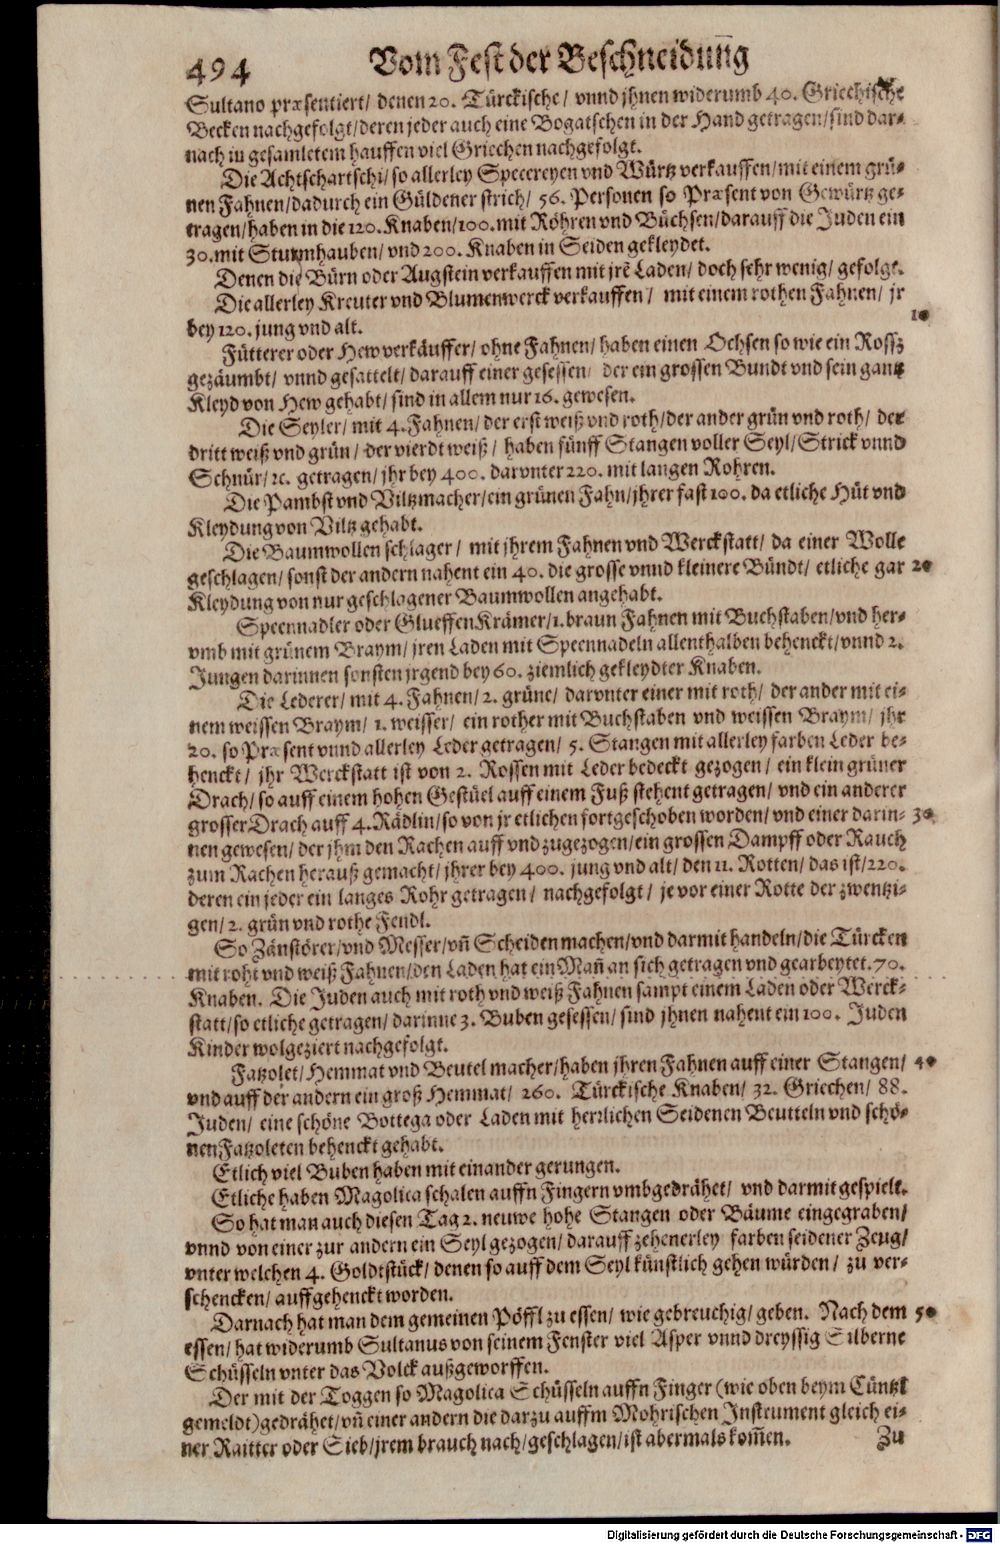 494 Vom Fest der Beschneidung̃
Sultano præsentiert/ denen 20. Türckische/ vnnd jhnen widerumb 40. Griechische
Becken nachgefolgt/deren jeder auch eine Bogatschen in der Hand getragen/sind dar-
nach in gesamletem hauffen viel Griechen nachgefolgt.
Die Achtschartschi/so allerley Specereyen vnd Würtz verkauffen/mit einem grü-
nen Fahnen/dadurch ein Güldener strich/ 56. Personen so Præsent von Gewürtz ge-
tragen/haben in die 120. Knaben/100. mit Röhren vnd Büchsen/darauff die Juden ein
30. mit Sturmhauben/ vnd 200. Knaben in Seiden gekleydet.
Denen die Bürn oder Augstein verkauffen mit jrẽ Laden/ doch sehr wenig/ gefolgt.
Die allerley Kreuter vnd Blumenwerck verkauffen/ mit einem rothen Fahnen/ jr
bey 120. jung vnd alt. 10
Fütterer oder Hewverkäuffer/ ohne Fahnen/ haben einen Ochsen so wie ein Rossz
gezäumbt/ vnnd gesattelt/ darauff einer gesessen/ der ein grossen Bundt vnd sein gantz
Kleyd von Hew gehabt/ sind in allem nur 16. gewesen.
Die Seyler/ mit 4. Fahnen/ der erst weiß vnd roth/der ander grün vnd roth/ der
dritt weiß vnd grün/ der vierdt weiß/ haben fünff Stangen voller Seyl/ Strick vnnd
Schnür/ ꝛc. getragen/ jhr bey 400. darvnter 220. mit langen Rohren.
Die Pambst vnd Viltzmacher/ein grünen Fahn/jhrer fast 100. da etliche Hüt vnd
Kleydung von Viltz gehabt.
Die Baumwollen schlager/ mit jhrem Fahnen vnd Werckstatt/ da einer Wolle
geschlagen/ sonst der andern nahent ein 40. die grosse vnnd kleinere Bündt/ etliche gar 20
Kleydung von nur geschlagener Baumwollen angehabt.
Specnnadler oder Glueffen Krämer/1. braun Fahnen mit Buchstaben/vnd her-
vmb mit grünem Braym/ jren Laden mit Specnnadeln allenthalben behenckt/vnnd 2.
Jungen darinnen sonsten jrgend bey 60. ziemlich gekleydter Knaben.
Die Lederer/ mit 4. Fahnen/ 2. grüne/ darvnter einer mit roth/ der ander mit ei-
nem weissen Braym/ 1. weisser/ ein rother mit Buchstaben vnd weissen Braym/ jhr
20. so Præsent vnnd allerley Leder getragen/ 5. Stangen mit allerley farben Leder be-
henckt/ jhr Werckstatt ist von 2. Rossen mit Leder bedeckt gezogen/ ein klein grüner
Drach/ so auff einem hohen Gestüel auff einem Fuß stehent getragen/ vnd ein anderer
grosser Drach auff 4. Rädlin/so von jr etlichen fortgeschoben worden/ vnd einer darin- 30
nen gewesen/ der jhm den Rachen auff vnd zugezogen/ein grossen Dampff oder Rauch
zum Rachen herauß gemacht/ jhrer bey 400. jung vnd alt/ den 11. Rotten/ das ist/220.
deren ein jeder ein langes Rohr getragen/ nachgefolgt/ je vor einer Rotte der zwentzi-
gen/ 2. grün vnd rothe Fendl.
So Zänstörer/vnd Messer/vñ Scheiden machen/vnd darmit handeln/die Türcken
mit roht vnd weiß Fahnen/den Laden hat ein Mañ an sich getragen vnd gearbeytet. 70.
Knaben. Die Juden auch mit roth vnd weiß Fahnen sampt einem Laden oder Werck-
statt/so etliche getragen/ darinne 3. Buben gesessen/ sind jhnen nahent ein 100. Juden
Kinder wolgeziert nachgefolgt.
Fatzolet/Hemmat vnd Beutel macher/haben jhren Fahnen auff einer Stangen/ 40
vnd auff der andern ein groß Hemmat/ 260. Türckische Knaben/ 32. Griechen/ 88.
Juden/ eine schöne Bottega oder Laden mit herrlichen Seidenen Beutteln vnd schö-
nen Fatzoleten behenckt gehabt.
Etlich viel Buben haben mit einander gerungen.
Etliche haben Magolica schalen auffn Fingern vmbgedrähet/ vnd darmit gespielt.
So hat man auch diesen Tag 2. neuwe hohe Stangen oder Bäume eingegraben/
vnnd von einer zur andern ein Seyl gezogen/ darauff zehenerley farben seidener Zeug/
vnter welchen 4. Goldtstück/ denen so auff dem Seyl künstlich gehen würden/ zu ver-
schencken/ auffgehenckt worden.
Darnach hat man dem gemeinen Pöffl zu essen/ wie gebreuchig/ geben. Nach dem 50
essen/ hat widerumb Sultanus von seinem Fenster viel Asper vnnd dreyssig Silberne
Schüsseln vnter das Volck außgeworffen.
Der mit der Toggen so Magolica Schüsseln auffn Finger (wie oben beym Cüntzl
gemeldt)gedrähet/vñ einer andern die darzu auffm Mohrischen Instrument gleich ei-
ner Raitter oder Sieb/jrem brauch nach/geschlagen/ist abermals kom̃en. Zu
Digitalisierung gefördert durch die Deutsche Forschungsgemeinschaft - DFG